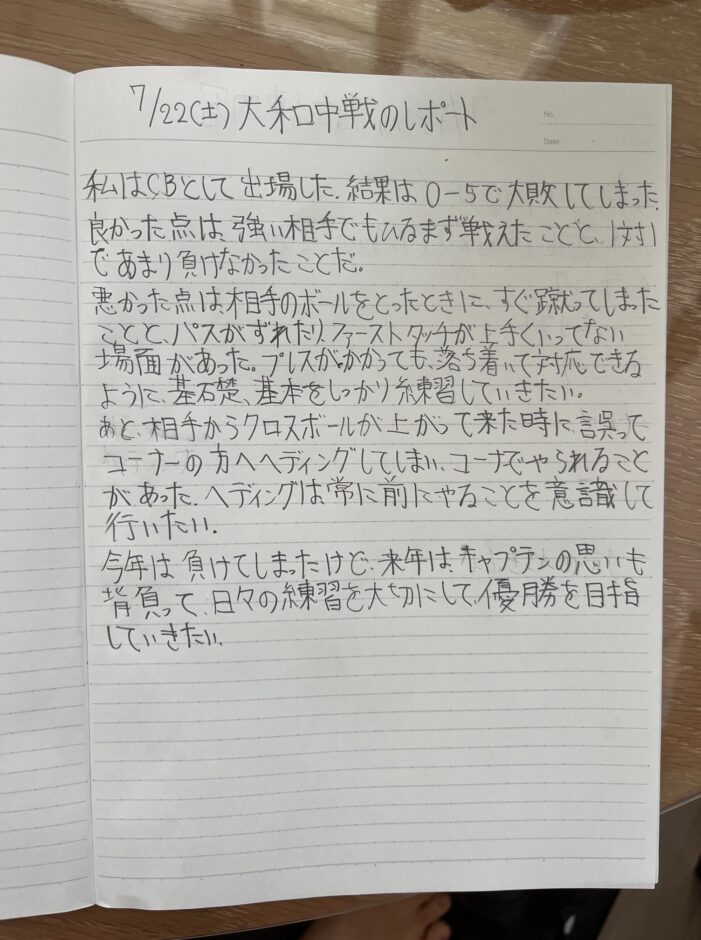 No.
Date
7/22(土) 大和中戦のレポート
私はCBとして出場した。結果は0-5で大敗してしまった。
良かった点は、強い相手でもひるまず戦えたことと、1対1
であまり負けなかったことだ。
悪かった点は、相手のボールをとったときに、すぐ蹴ってしまった
ことと、パスがずれたり、ファーストタッチが上手くいってない
場面があった。プレスがかかっても、落ち着いて対応できる
ように、基礎、基本をしっかり練習していきたい。
あと、相手からクロスボールが上がって来た時に、誤って
コーナーの方へヘディングしてしまい、コーナでやられること
があった。ヘディングは常に前にやることを意識して
行いたい。
今年は負けてしまったけど、来年は、キャプテンの思いも
背負って、日々の練習を大切にして、優勝を目指
していきたい。